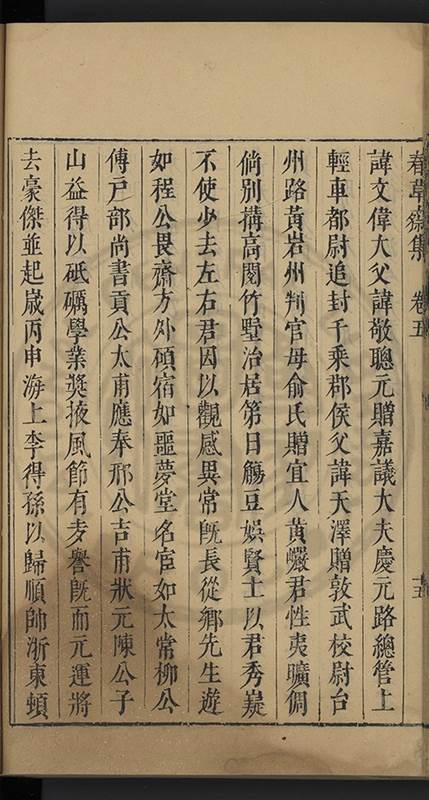 春草齋集　卷五　十五
諱文偉大父諱敬聰元贈嘉議大夫慶元路總管上
輕車都尉追封千乘郡侯父諱天澤贈敦武校尉台
州路黃岩州判官母俞氏贈宜人黃巖君性夷曠倜
倘別搆高閣竹墅治居第日觴豆娛賢士以君秀嶷
不使少去左右君因以觀感異常旣長從鄉先生遊
如程公畏齋方外碩宿如噩夢堂名宦如太常柳公
傅戸部尚書貢公太甫應奉邢公吉甫狀元陳公子
山益得以砥礪學業奬掖風節有夌譽旣而元運將
去豪傑並起嵗丙申海上李得孫以歸順帥浙東頓